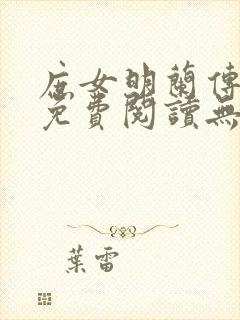 庶女明蘭傳
免費閱讀無
葉雷